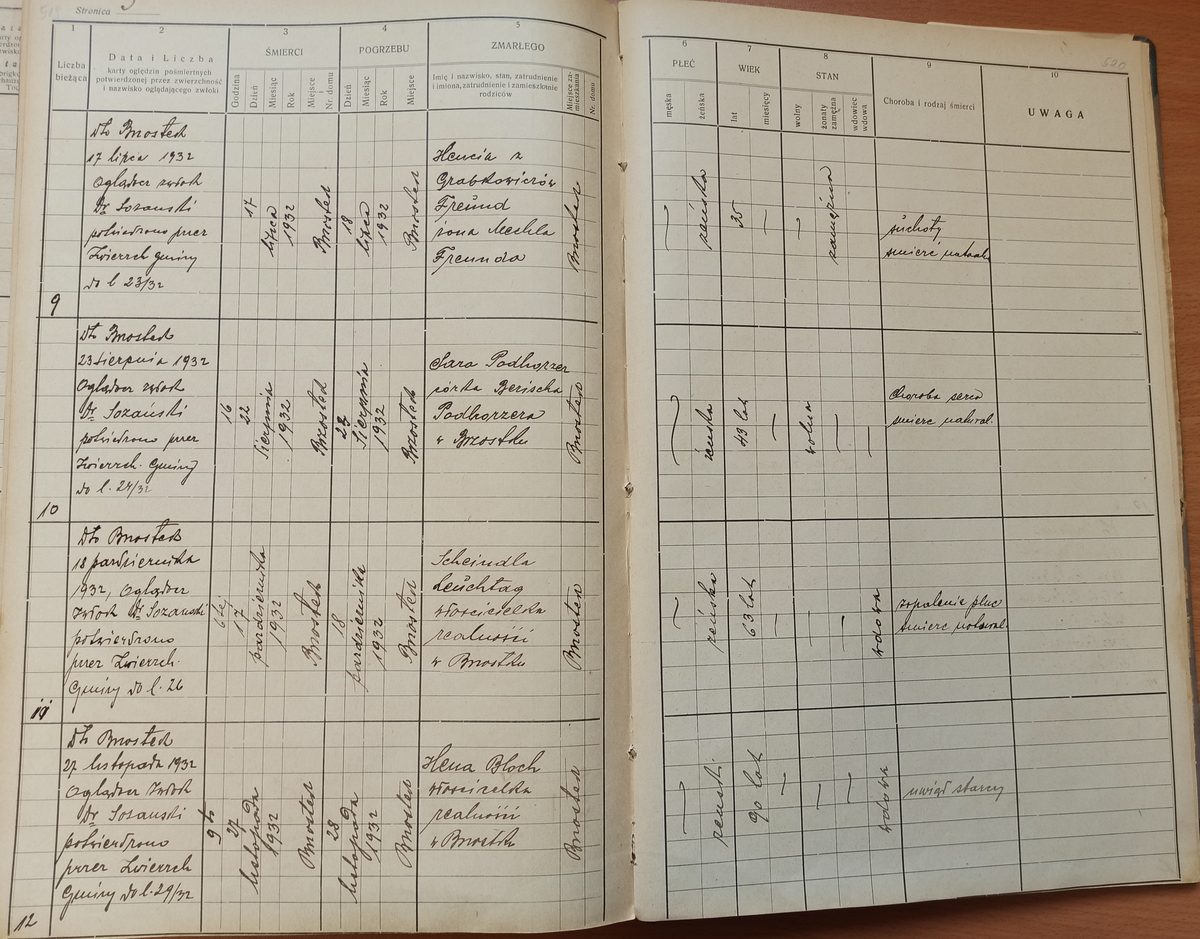 Stronica 5
1
2
3
4
5
Liczba bieżąca
Data i Liczba
karty oględzin pośmiertnych
potwierdzonej przez zwierzchność
i nazwisko oglądającego zwłoki
ŚMIERCI
Godzina
Dzień
Miesiąc
Rok
Miejsce
Nr. domu
POGRZEBU
Dzień
Miesiąc
Rok
Miejsce
ZMARŁEGO
Imię i nazwisko, stan, zatrudnienie
i imiona, zatrudnienie i zamieszkanie
rodziców
Miejsce za-
mieszkania
Nr. domu
6
7
8
9
10
PŁEĆ
męska
żeńska
WIEK
lat
miesięcy
STAN
wolny
żonaty
zamężna
wdowiec
wdowa
Choroba i rodzaj śmierci
UWAGA
520
9
Dto Brzostek
17 lipca 1932
Oglądacz zwłok
Dr. Sozański
potwierdzono przez
Zwierzch gminy
do l 23/32
17
lipca
1932
Brzostek
18
lipca
1932
Brzostek
Hencia z
Grabkowiczów
Freund
żona Mechla
Freunda
Brzostek
żeńska
35
zamężna
suchoty
śmierć natural.
10
Dto Brzostek
23 sierpnia 1932
Oglądacz zwłok
Dr. Sozański
potwierdzono przez
Zwierzch. Gminy
do l. 24/32
16
22
sierpnia
1932
Brzostek
23
sierpnia
1932
Brzostek
Sara Podhorzer
córka Berischa
Podhorzera
w Brzostku
Brzostek
żeńska
43 lat
wolna
Choroba serca
śmierć natural.
11
Dto Brzostek
18 października
1932, Oglądacz
Zwłok Dr Sozański
potwierdzono
przez Zwierzch.
Gminy do l. 26
6 tej
17
października
1932
Brzostek
18
października
1932
Brzostek
Scheindla
Leuchtag
właścicielka
realności
w Brzostku
Brzostek
żeńska
63 lat
wdowa
zapalenie płuc
śmierć natural.
12
Dto Brzostek
27 listopada 1932
Oglądacz Zwłok
Dr Sozański
potwierdzono
przez Zwierzch
Gminy do l. 29/32
9 ta
27
listopada
1932
Brzostek
28
listopada
1932
Brzostek
Hena Bloch
właścicielka
realności
w Brzostku
Brzostek
żeńska
90 lat
wdowa
uwiąd starczy